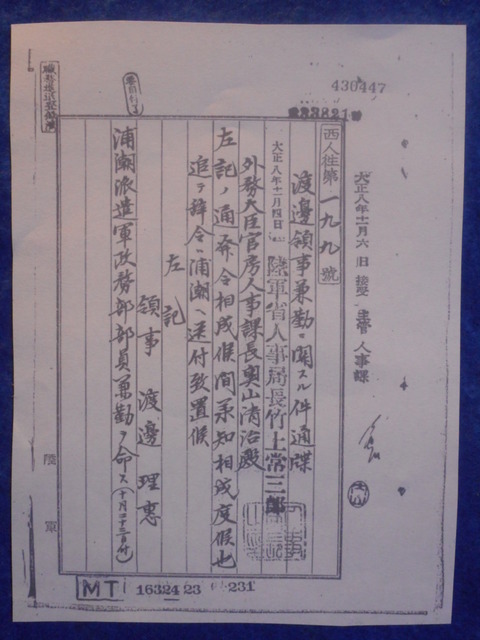 430447
23821
大正八年十一月六日 接受 主管 人事課
西人往第一九九號
渡邊領事兼勤ニ關スル件通牒
大正八年十一月四日 陸軍省人事局長竹上常三郎
外務大臣官房人事課長奥山清治殿
左記ノ通発令相成候間承知相成度候也
追テ辞令ハ浦潮ヘ送付致置候
左記
領事 渡邊理惠
浦潮派遣軍政務部部員兼勤ヲ命ス(十月二十三日付)
陸軍
MT 1632423 231